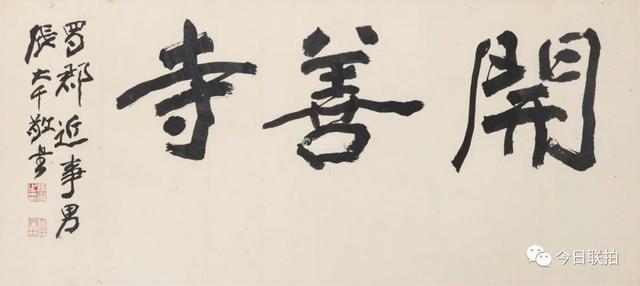 開善寺
蜀郡近事男
張大千敬書
今日联拍